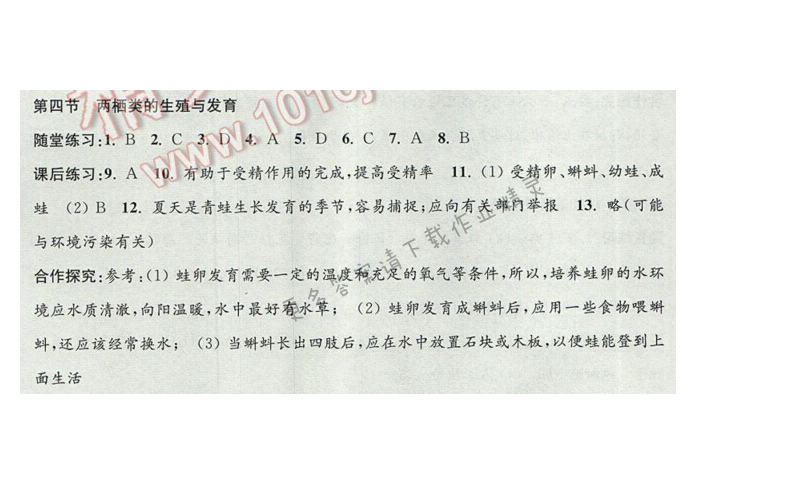 第四节 两栖类的生殖与发育
随堂练习:1. B 2. C 3. D 4. A 5. D 6. C 7. A 8. B
课后练习:9. A 10. 有助于受精作用的完成,提高受精率 11. (1) 受精卵、蝌蚪、幼蛙、成
蛙 (2) B 12. 夏天是青蛙生长发育的季节,容易捕捉;应向有关部门举报 13. 略(可能
与环境污染有关)
合作探究:参考:(1) 蛙卵发育需要一定的温度和充足的氧气等条件,所以,培养蛙卵的水环
境应水质清澈,向阳温暖,水中最好有水草; (2) 蛙卵发育成蝌蚪后,应用一些食物喂蝌
蚪,还应该经常换水; (3) 当蝌蚪长出四肢后,应在水中放置石块或木板,以便蛙能登到上
面生活
更多答案请下载作业精灵